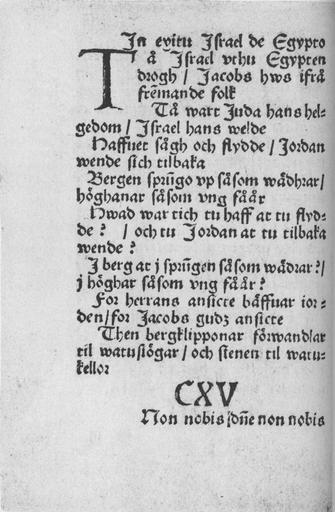 In exitu Israel de Egypto
Tå Israel vthu Egypten
drogh / Jacobs hws ifrå
frēmande folk
Tå wart Juda hans hel-
gedom / Israel hans welde
Haffuet sågh och flydde / Jordan
wende sich tilbaka
Bergen sprūgo vp såsom wädhrar /
höghanar såsom vng fåår
Hwad war tich tu haff at tu flyd-
de ? / och tu Jordan at tu tilbaka
wende ?
J berg at j sprūgen såsom wädrar ? /
j höghar såsom vng fåår ?
For herrans ansicte bäffuar ior-
den / for Jacobs gudz ansicte
Then bergklipponar förwandlar
til watusiögar / och stenen til watu-
kellor
CXV
Non nobis dn̄e non nobis